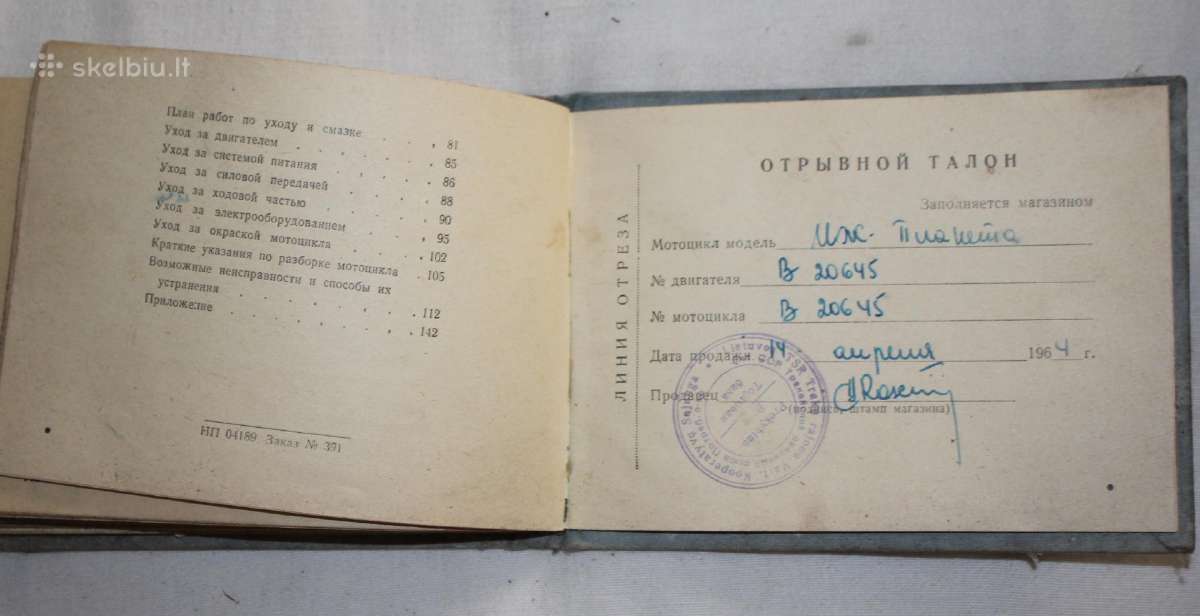 skelbiu.lt
План работ по уходу и смазке . . , 81
Уход за двигателем . . . . . . . 85
Уход за системой питания . . . . . 86
Уход за силовой передачей . . . . 88
Уход за ходовой частью . . . . . 90
Уход за электрооборудованием . . . 95
Уход за окраской мотоцикла . . . . 102
Краткие указания по разборке мотоцикла . 105
Возможные неисправности и способы их
устранения . . . . . . . . 112
Приложение . . . . . . . . 142
НП 04189 Заказ № 391
ЛИНИЯ ОТРЕЗА
ОТРЫВНОЙ ТАЛОН
Заполняется магазином
Мотоцикл модель Иж-Планета
№ двигателя В 20645
№ мотоцикла В 20645
Дата продажи 14 апреля 1964 г.
Продавец
(подпись, штамп магазина)
Lietuvos TSR Trakų Vart. Kooperatyvų Sąjunga